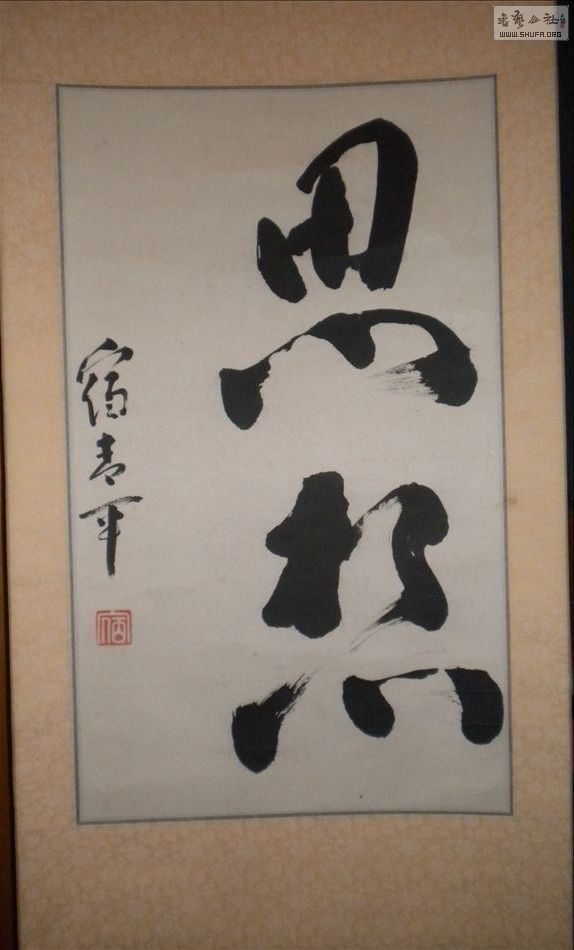 思想
宿青平
宿
书艺公社
WWW.SHUFA.ORG